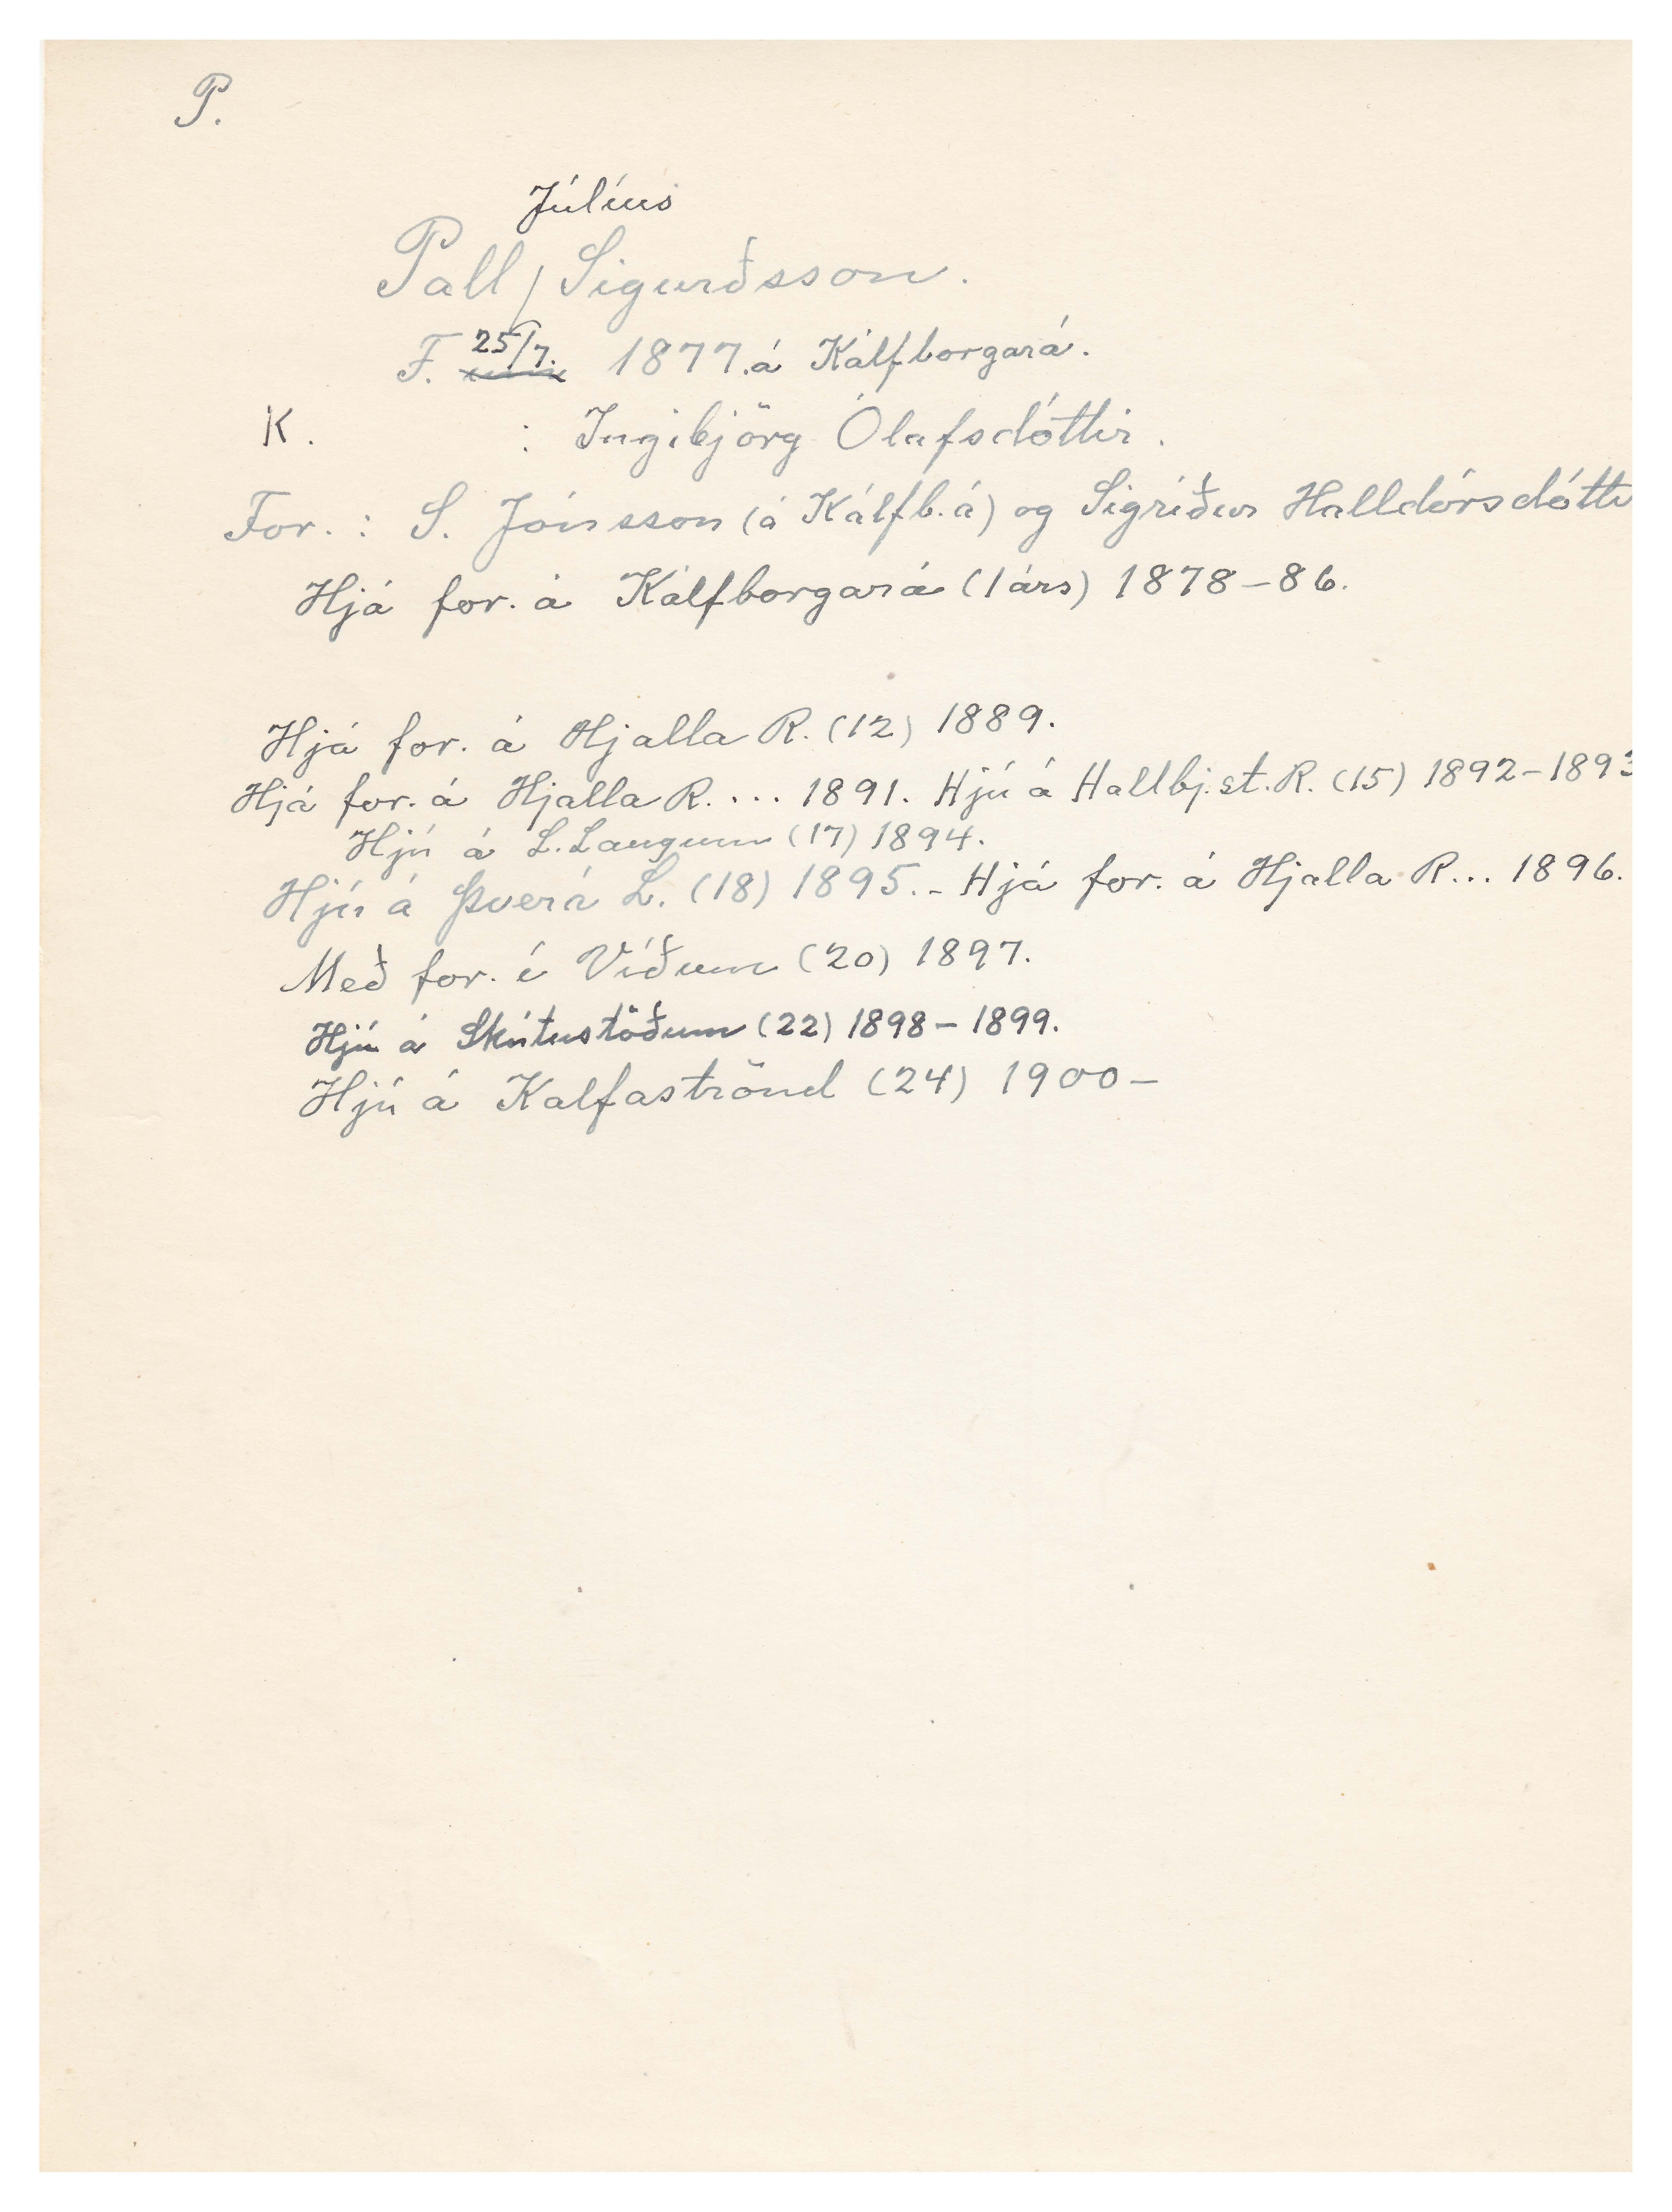 P.
Júlíus
Pall / Sigurðsson.
F. 25/7. 1877. á Kálfborgará.
K. : Ingibjörg Ólafsdóttir.
For. : S. Jónsson (á Kálfb.á) og Sigríður Halldórsdótti
Hjá for. á Kálfborgará (1 árs) 1878-86.
Hjá for. á Hjalla R. (12) 1889.
Hjá for. á Hjalla R. ... 1891. Hjú á Hallbj.st. R. (15) 1892-1893
Hjú á L. Laugum (17) 1894.
Hjú á Þverá L. (18) 1895. - Hjá for. á Hjalla R... 1896.
Með for. í Víðum (20) 1897.
Hjú á Skútustöðum (22) 1898-1899.
Hjú á Kalfaströnd (24) 1900-